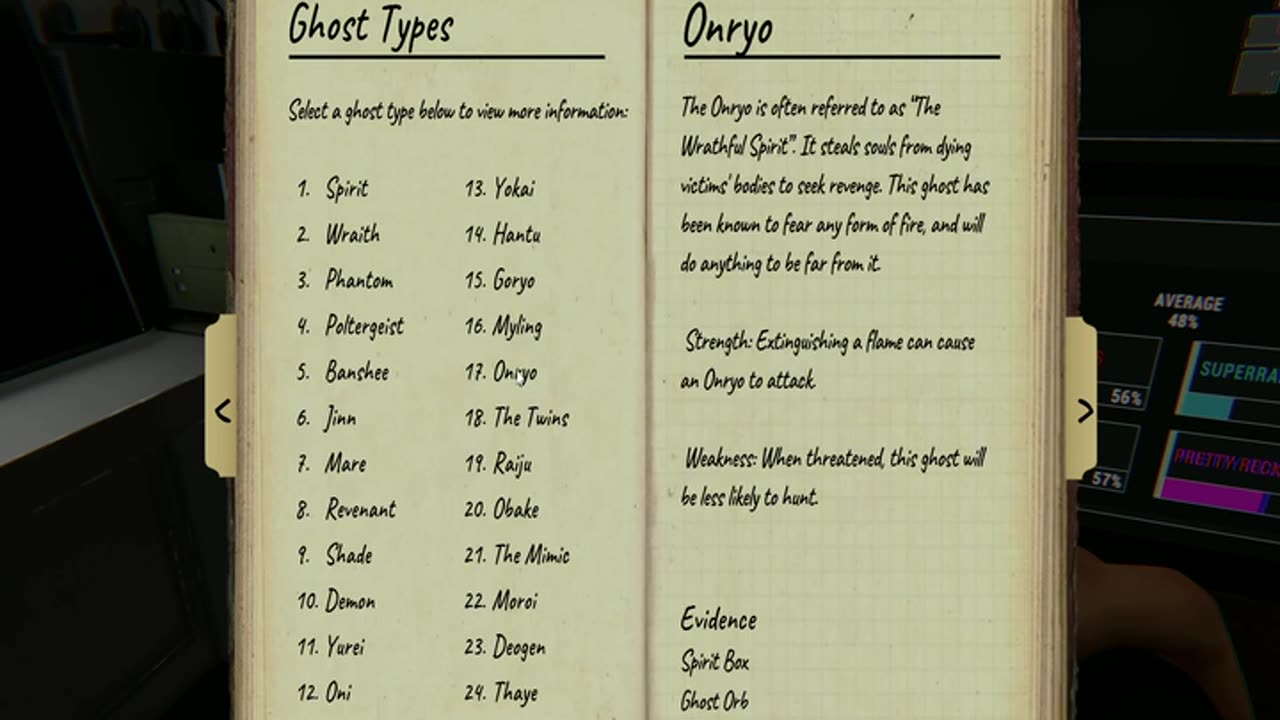 Ghost Types
Select a ghost type below to view more information:
1. Spirit
2. Wraith
3. Phantom
4. Poltergeist
5. Banshee
6. Jinn
7. Mare
8. Revenant
9. Shade
10. Demon
11. Yurei
12. Oni
13. Yokai
14. Hantu
15. Goryo
16. Myling
17. Onryo
18. The Twins
19. Raiju
20. Obake
21. The Mimic
22. Moroi
23. Deogen
24. Thaye
<
Onryo
The Onryo is often referred to as "The
Wrathful Spirit". It steals souls from dying
victims' bodies to seek revenge. This ghost has
been known to fear any form of fire, and will
do anything to be far from it.
Strength: Extinguishing a flame can cause
an Onryo to attack.
Weakness: When threatened, this ghost will
be less likely to hunt.
Evidence
Spirit Box
Ghost Orb
>
AVERAGE
48%
56%
57%